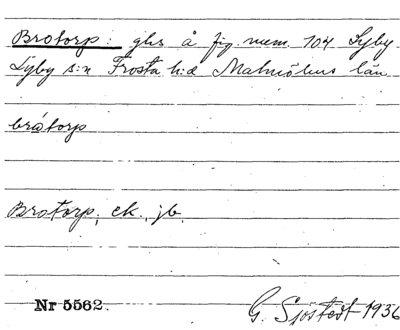 Brotorp: ghs å fig. num. 104 Lyby
Lyby s:n Frosta h:d Malmöhus län
bråtorp
Brotorp, ek., jb.
Nr 5562.
G. Sjöstedt 1936